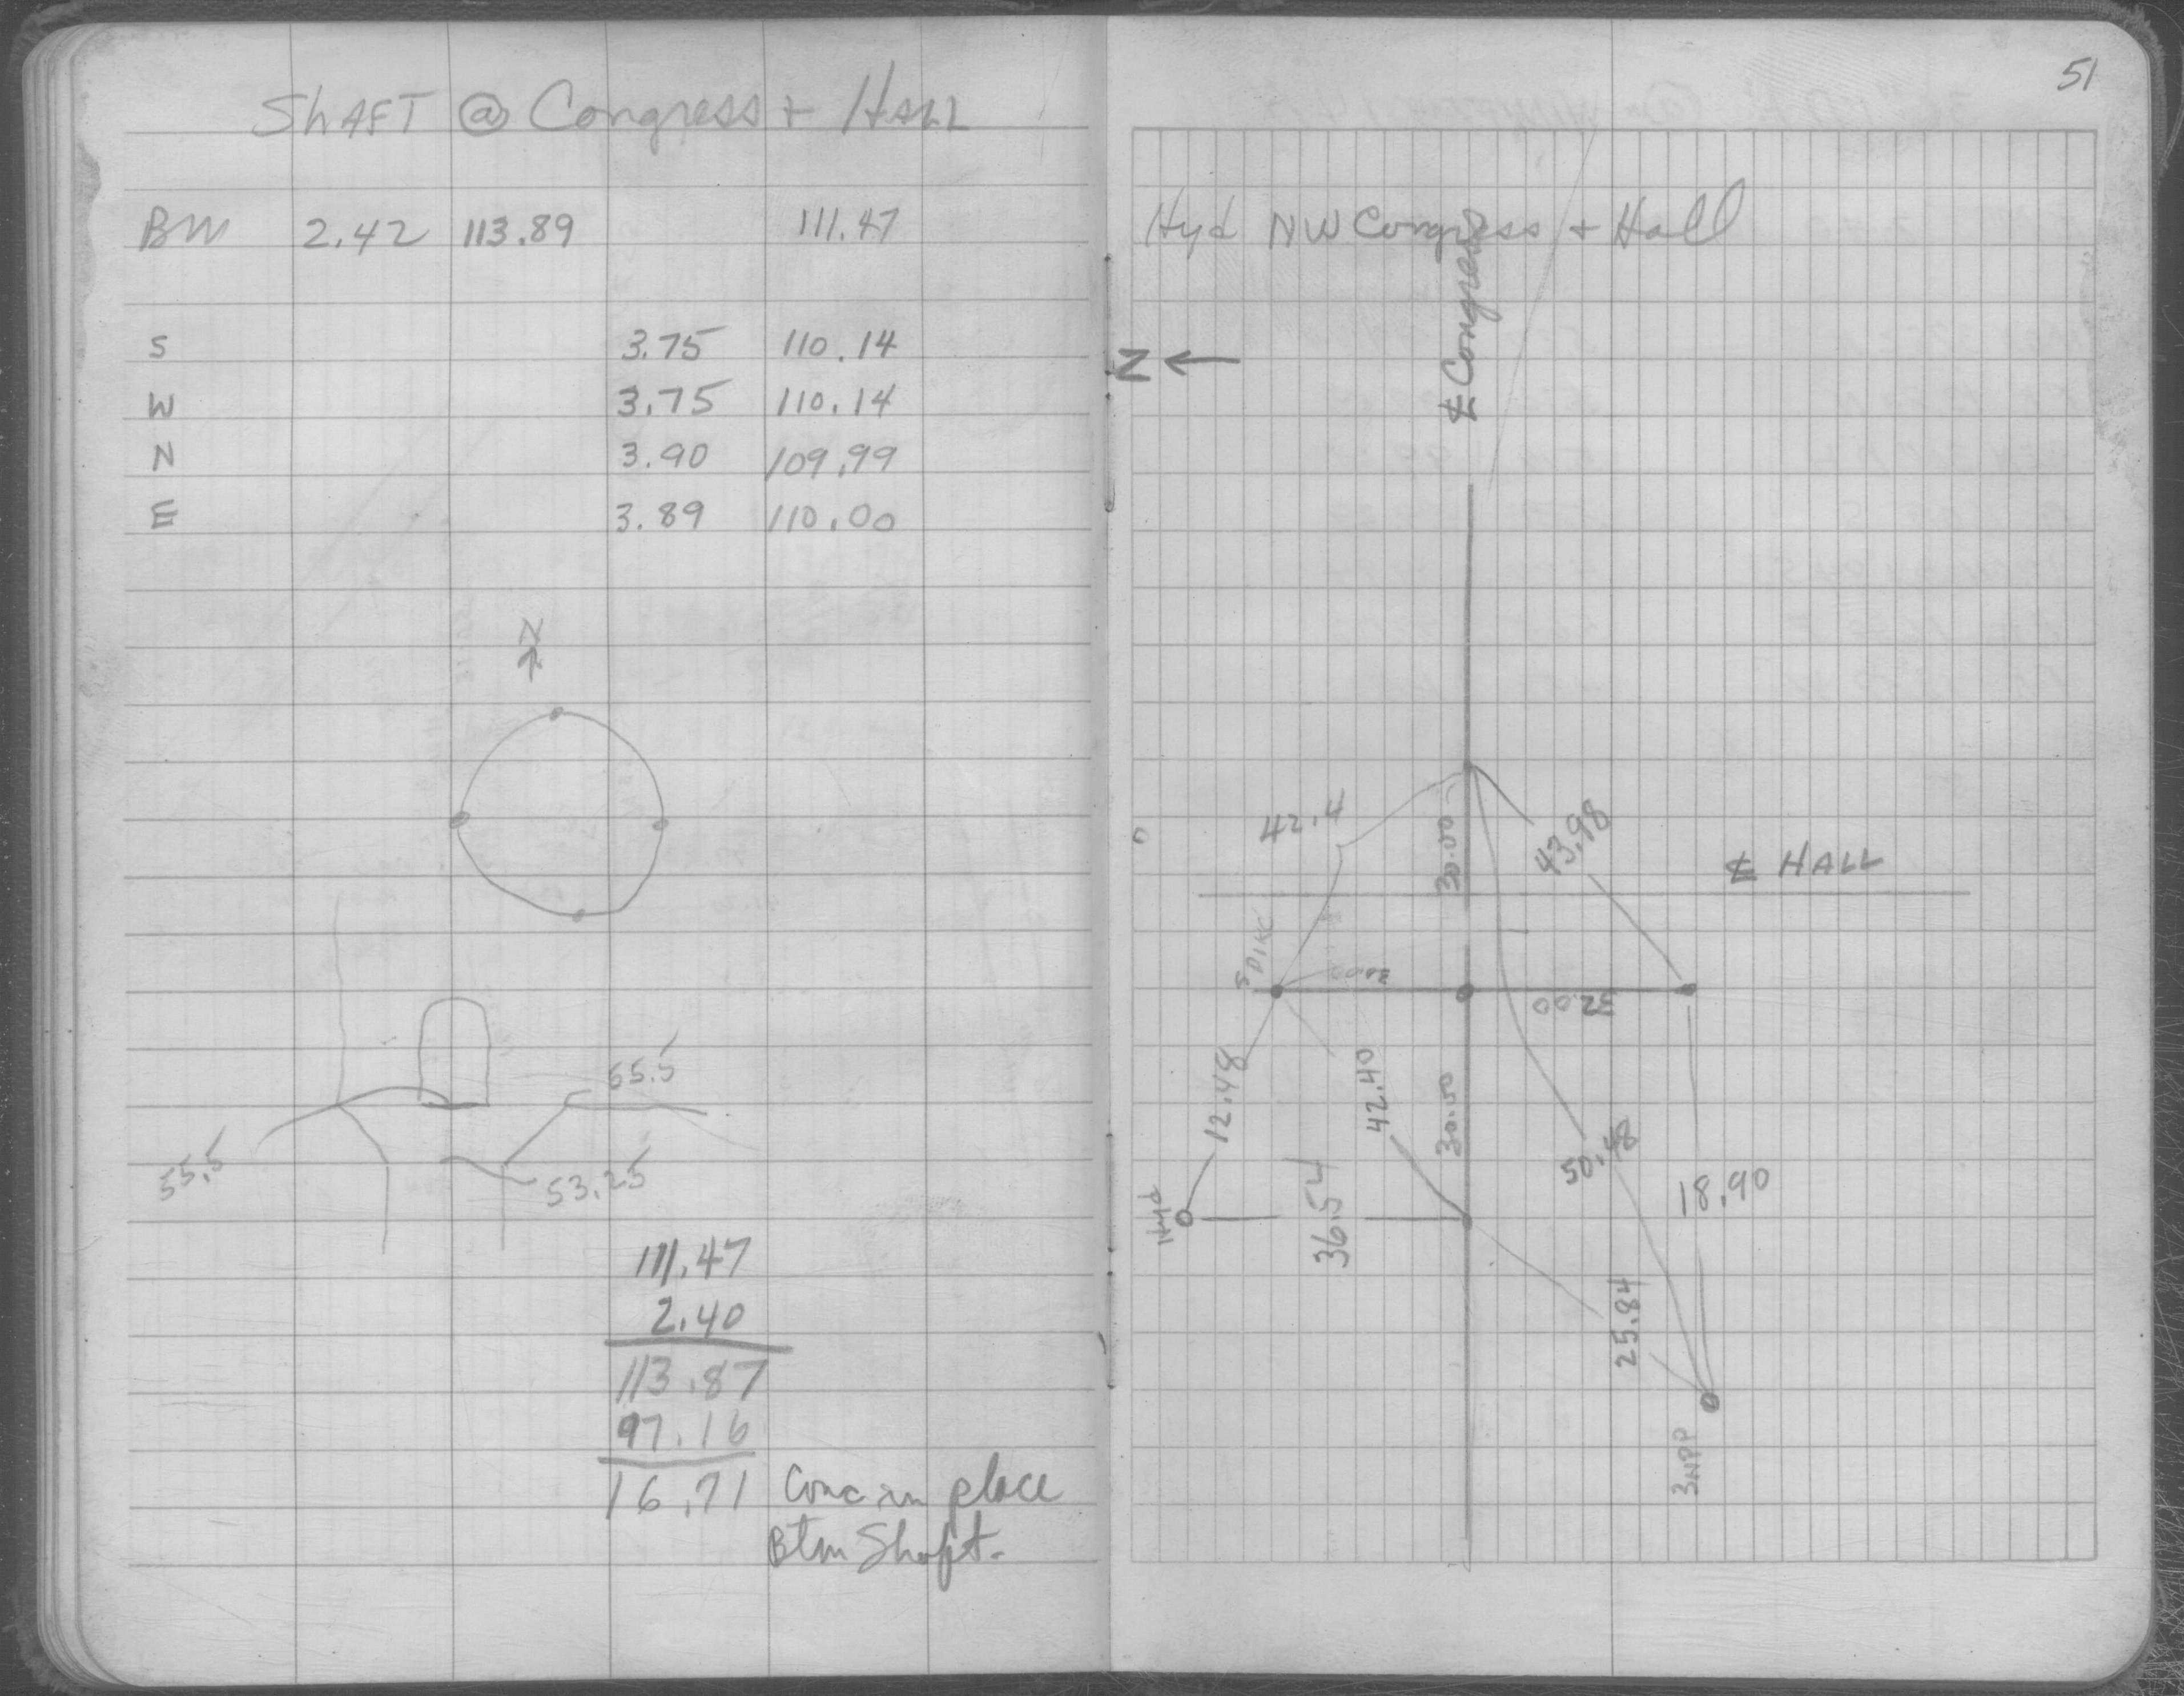 SHAFT @ Congress + HALL
BM 2.42 113.89 111.47
S 3.75 110.14
W 3.75 110.14
N 3.90 109.99
E 3.89 110.00
N
55.5
55.5
53.25
111.47
2.40
113.87
97.16
16.71 Conc in place
Btm Shaft.
51
Hyd NW Congress + Hall
N
℄ Congress
42.4
30.00
43.98
℄ HALL
SPIKE
30.00
32.00
12.48
42.40
30.00
50.48
18.90
Hyd
36.54
25.84
3NPP